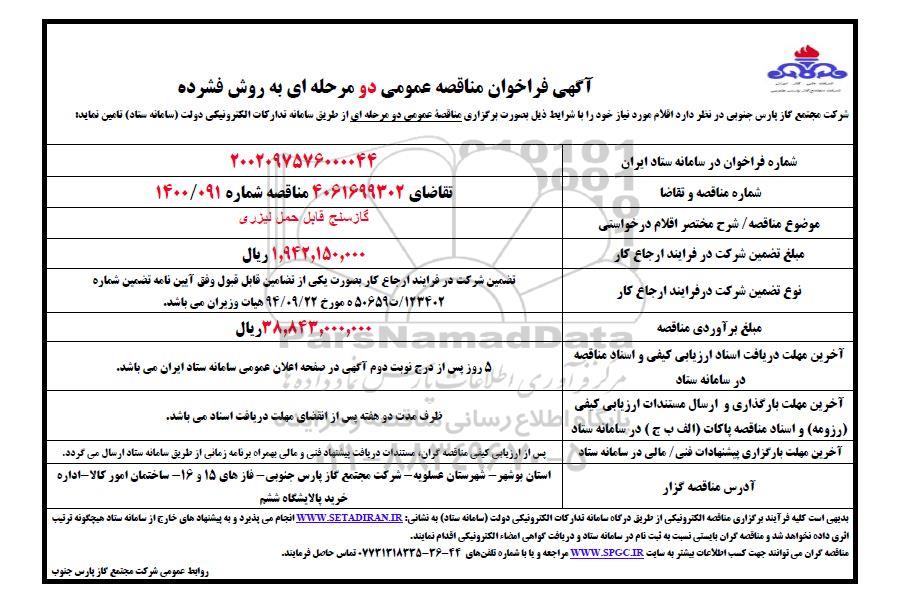 آگهی فراخوان مناقصه عمومی دو مرحله ای به روش فشرده
شرکت مجتمع گاز پارس جنوبی در نظر دارد اقلام مورد نیاز خود را با شرایط ذیل بصورت برگزاری مناقصۀ عمومی دو مرحله ای از طریق سامانه تدارکات الکترونیکی دولت (سامانه ستاد) تامین نماید:
شماره فراخوان در سامانه ستاد ایران
۲۰۰۲۰۹۷۵۷۶۰۰۰۰۴۴
شماره مناقصه و تقاضا
تقاضای ۴۰۶۱۶۹۹۳۰۲ مناقصه شماره ۱۴۰۰/۰۹۱
موضوع مناقصه/ شرح مختصر اقلام درخواستی
گازسنج قابل حمل لیزری
مبلغ تضمین شرکت در فرایند ارجاع کار
۱,۹۴۲,۱۵۰,۰۰۰ ریال
نوع تضمین شرکت درفرایند ارجاع کار
تضمین شرکت در فرایند ارجاع کار بصورت یکی از تضامین قابل قبول وفق آیین نامه تضمین شماره
۱۲۳۴۰۲/ت۵۰۶۵۹ ه مورخ ۹۴/۰۹/۲۲ هیات وزیران می باشد.
مبلغ برآوردی مناقصه
۳۸,۸۴۳,۰۰۰,۰۰۰ریال
ParsNamadData
آخرین مهلت دریافت اسناد ارزیابی کیفی و اسناد مناقصه
در سامانه ستاد
۵ روز پس از درج نوبت دوم آگهی در صفحه اعلان عمومی سامانه ستاد ایران می باشد.
مرکز فرآوری اطلاعات پارس نماد داده ها
آخرین مهلت بارگذاری و ارسال مستندات ارزیابی کیفی
(رزومه) و اسناد مناقصه پاکات (الف ب ج ) در سامانه ستاد
ظرف مدت دو هفته پس از انقضای مهلت دریافت اسناد می باشد.
پایگاه اطلاع رسانی مناقصه و مزایده
آخرین مهلت بارگزاری پیشنهادات فنی/ مالی در سامانه ستاد
پس از ارزیابی کیفی مناقصه گران، مستندات دریافت پیشنهاد فنی و مالی بهمراه برنامه زمانی از طریق سامانه ستاد ارسال می گردد.
۰۲۱-۸۸۳۴۹۶۷۰-۵
آدرس مناقصه گزار
استان بوشهر– شهرستان عسلویه– شرکت مجتمع گاز پارس جنوبی– فاز های ۱۵ و ۱۶– ساختمان امور کالا–اداره
خرید پالایشگاه ششم
بدیهی است کلیه فرآیند برگزاری مناقصه الکترونیکی از طریق درگاه سامانه تدارکات الکترونیکی دولت (سامانه ستاد) به نشانی: WWW.SETADIRAN.IR انجام می پذیرد و به پیشنهاد های خارج از سامانه ستاد هیچگونه ترتیب
اثری داده نخواهد شد و مناقصه گران بایستی نسبت به ثبت نام در سامانه ستاد و دریافت گواهی امضاء الکترونیکی اقدام نمایند.
مناقصه گران می توانند جهت کسب اطلاعات بیشتر به سایت WWW.SPGC.IR مراجعه و یا با شماره تلفن‌های ۴۴-۳۶-۰۷۷۳۱۳۱۸۳۳۵ تماس حاصل فرمایند.
روابط عمومی شرکت مجتمع گاز پارس جنوب